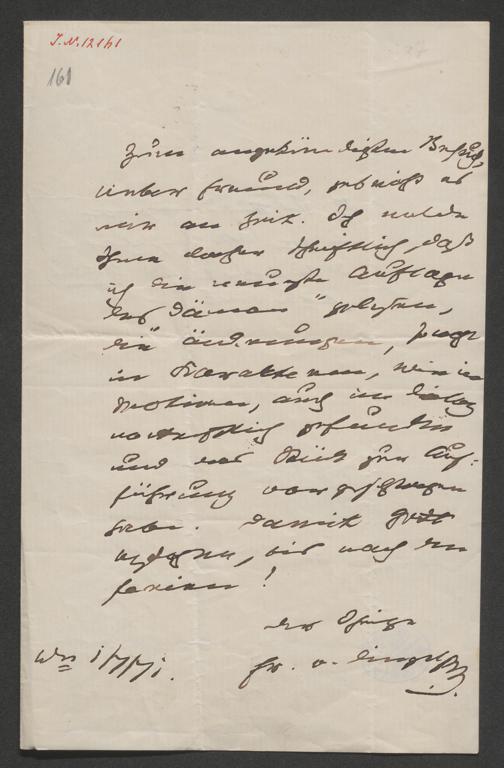 I.N. 12161
161
Zum angekündigten Besuch,
lieber Freund, gebricht es
mir an Zeit. Ich melde
Ihnen daher schriftlich, daß
ich die neueste Auflage
des "Dämon" gelesen,
die Änderungen, sowohl
in Charakteren, wie in
Motiven, auch im Dialog
vortrefflich gefunden
und das Stück zur Auf-
führung vorgeschlagen
habe. Damit Gott
befohlen, bis nach den
Ferien!
Der Ihrige
Fr. v. Dingelstedt
Wn 1/7/71.